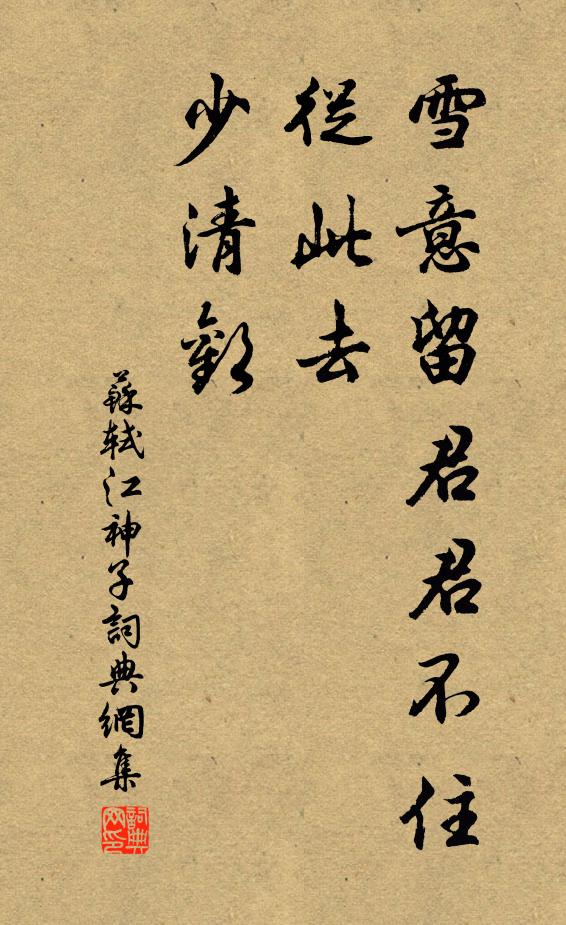 雪意留君君不住
從此去
少清歡
蘇軾江神子詞典網集
詞典網印